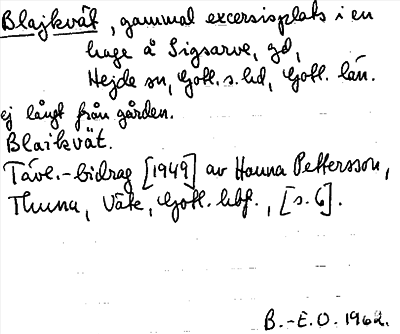 Blajkvät, gammal excersisplats i en
hage å Sigsarve, gd,
Hejde sn, Gotl. s. hd, Gotl. län.
ej långt från gården.
Blaikvät.
Tävl.-bidrag [1949] av Hanna Pettersson,
Thuna, Väte, Gotl. hbf., [s. 6].
B.-E.O. 1962.